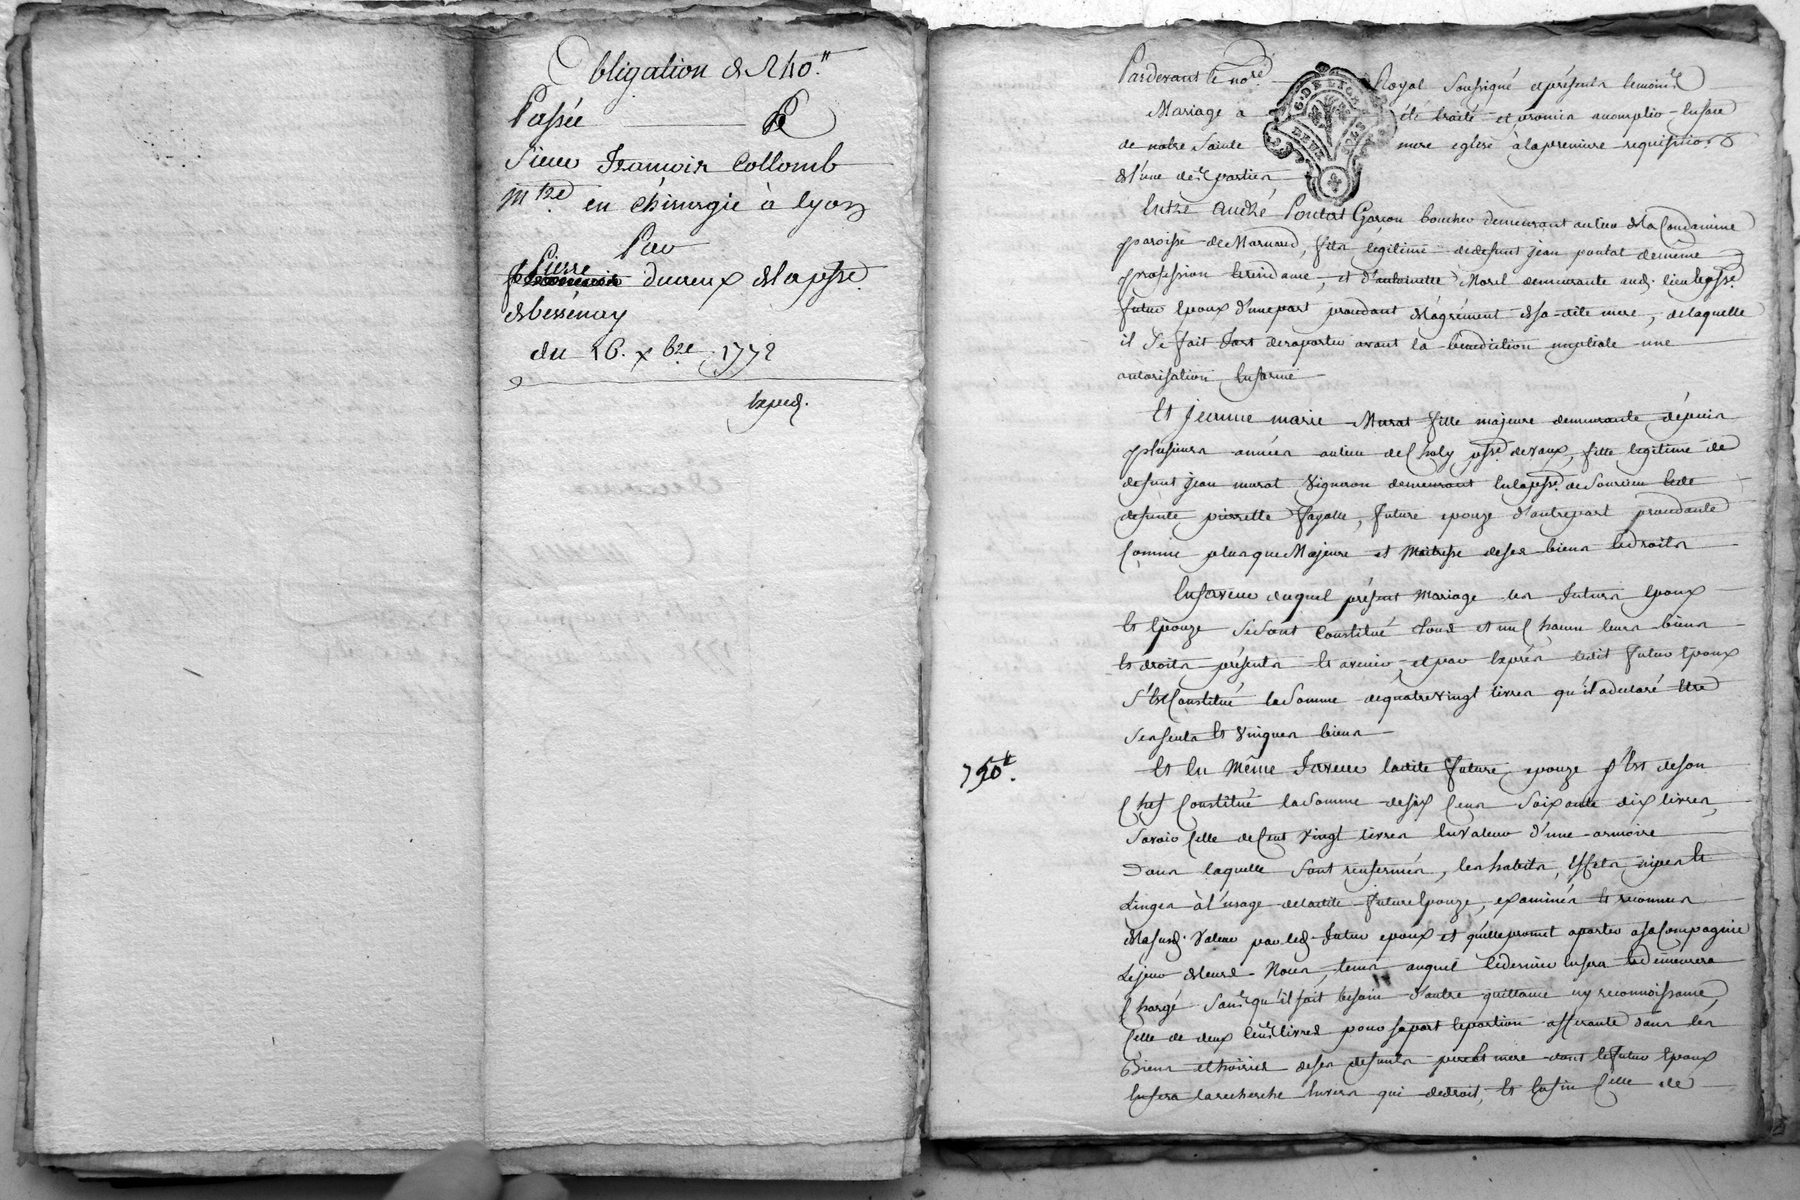 Obligation de 240.ll
Passée
Sieur François Collomb
m.tre en chirurgie à lyon
Par
Pierre ducreux de la psse.
de bessenay
du 16. xbre. 1772
Exped.
Pardevant le no.re Royal Soussigné et présents temoins
Mariage a été traité et promis accomplir en face
G. DE LYON
DEUX SOLS
de notre Sainte mere eglise à la premiere requisition
de l'une des parties
Entre André Poulat Garçon boucher demeurant au lieu de la Condamine
paroisse de Marnand, fils légitime de defunt jean poulat de même
profession et d'antoinette Morel demeurante aud. lieu psse.
futur Epoux d'une part procedant de l'agrément de sa dite mere, de laquelle
il se fait fort de raporter avant la bénédiction nuptiale une
autorisation En forme
Et jeanne marie Murat fille majeure demeurante depuis
plusieurs années au lieu de Choly psse. de vaux, fille legitime de
defunt jean murat Vigneron demeurant En la psse. de Sourcieu et de
defunte pierrette fayolle, future epouze d'autre part procedante
Comme plus que Majeure et Maitresse de ses biens et droits
En faveur duquel présent Mariage les futurs Epoux
Et Epouze se sont Constitué tous et un Chacun leurs biens
Et droits présents Et avenir, et par Exprès ledit futur Epoux
s'est Constitué la Somme de quatre vingt livres qu'il a declaré Etre
Ses seuls Et uniques biens
750ll.
Et En Même faveur ladite future epouze s'est de son
Chef Constitué la Somme de six Cens Soixante dix livres,
Savoir Celle de Cent Vingt livres En valeur d'une armoire
Dans laquelle sont renfermés, les habits, Effets, nipes Et
Linges à l'usage de ladite future Epouze, examinés Et reconnus
de la susd. Valeur par led. futur epoux et qu'elle promet aporter a sa Compagnie
Le jour de leurs Noces, tems auquel Ce dernier En sera Et demeurera
Chargé Sans qu'il soit besoin d'autre quittance ny reconnoissance,
Celle de deux Cens livres pour sa part Et portion afferante dans les
Biens et hoiries de ses defunts pere et mere dont le futur Epoux
En fera la recherche Envers qui de droit, Et Enfin Celle de